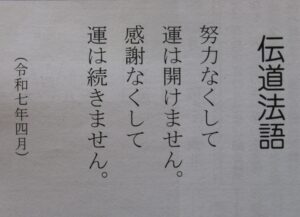 伝道法語
努力なくして
運は開けません。
感謝なくして
運は続きません。
（令和七年四月）